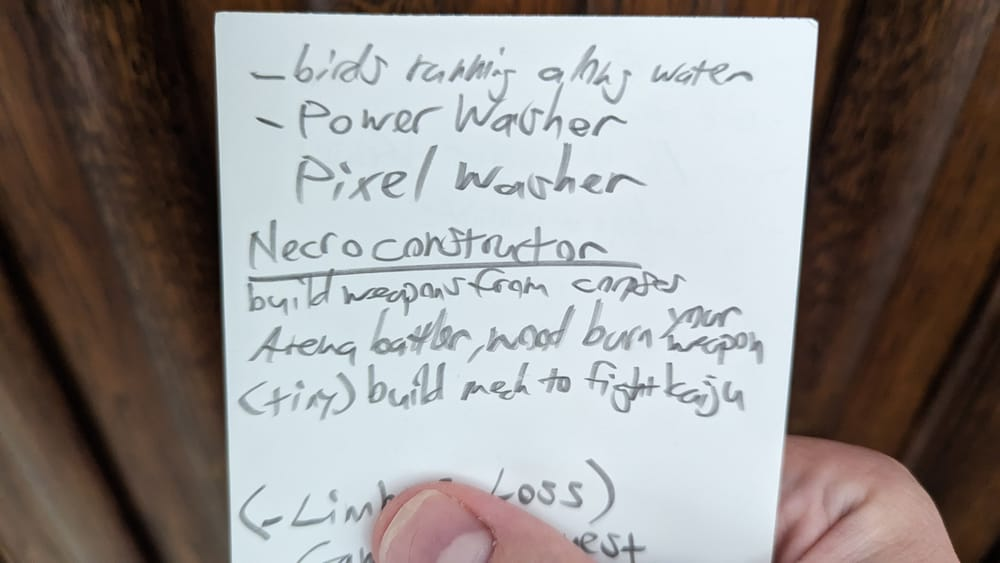 - birds running along water
- Power Washer
Pixel Washer
Necroconstructor
build weapons from corpses
Arena battler, wood burn your weapon
(tiny) build mech to fight kaiju
(- Limb Loss)